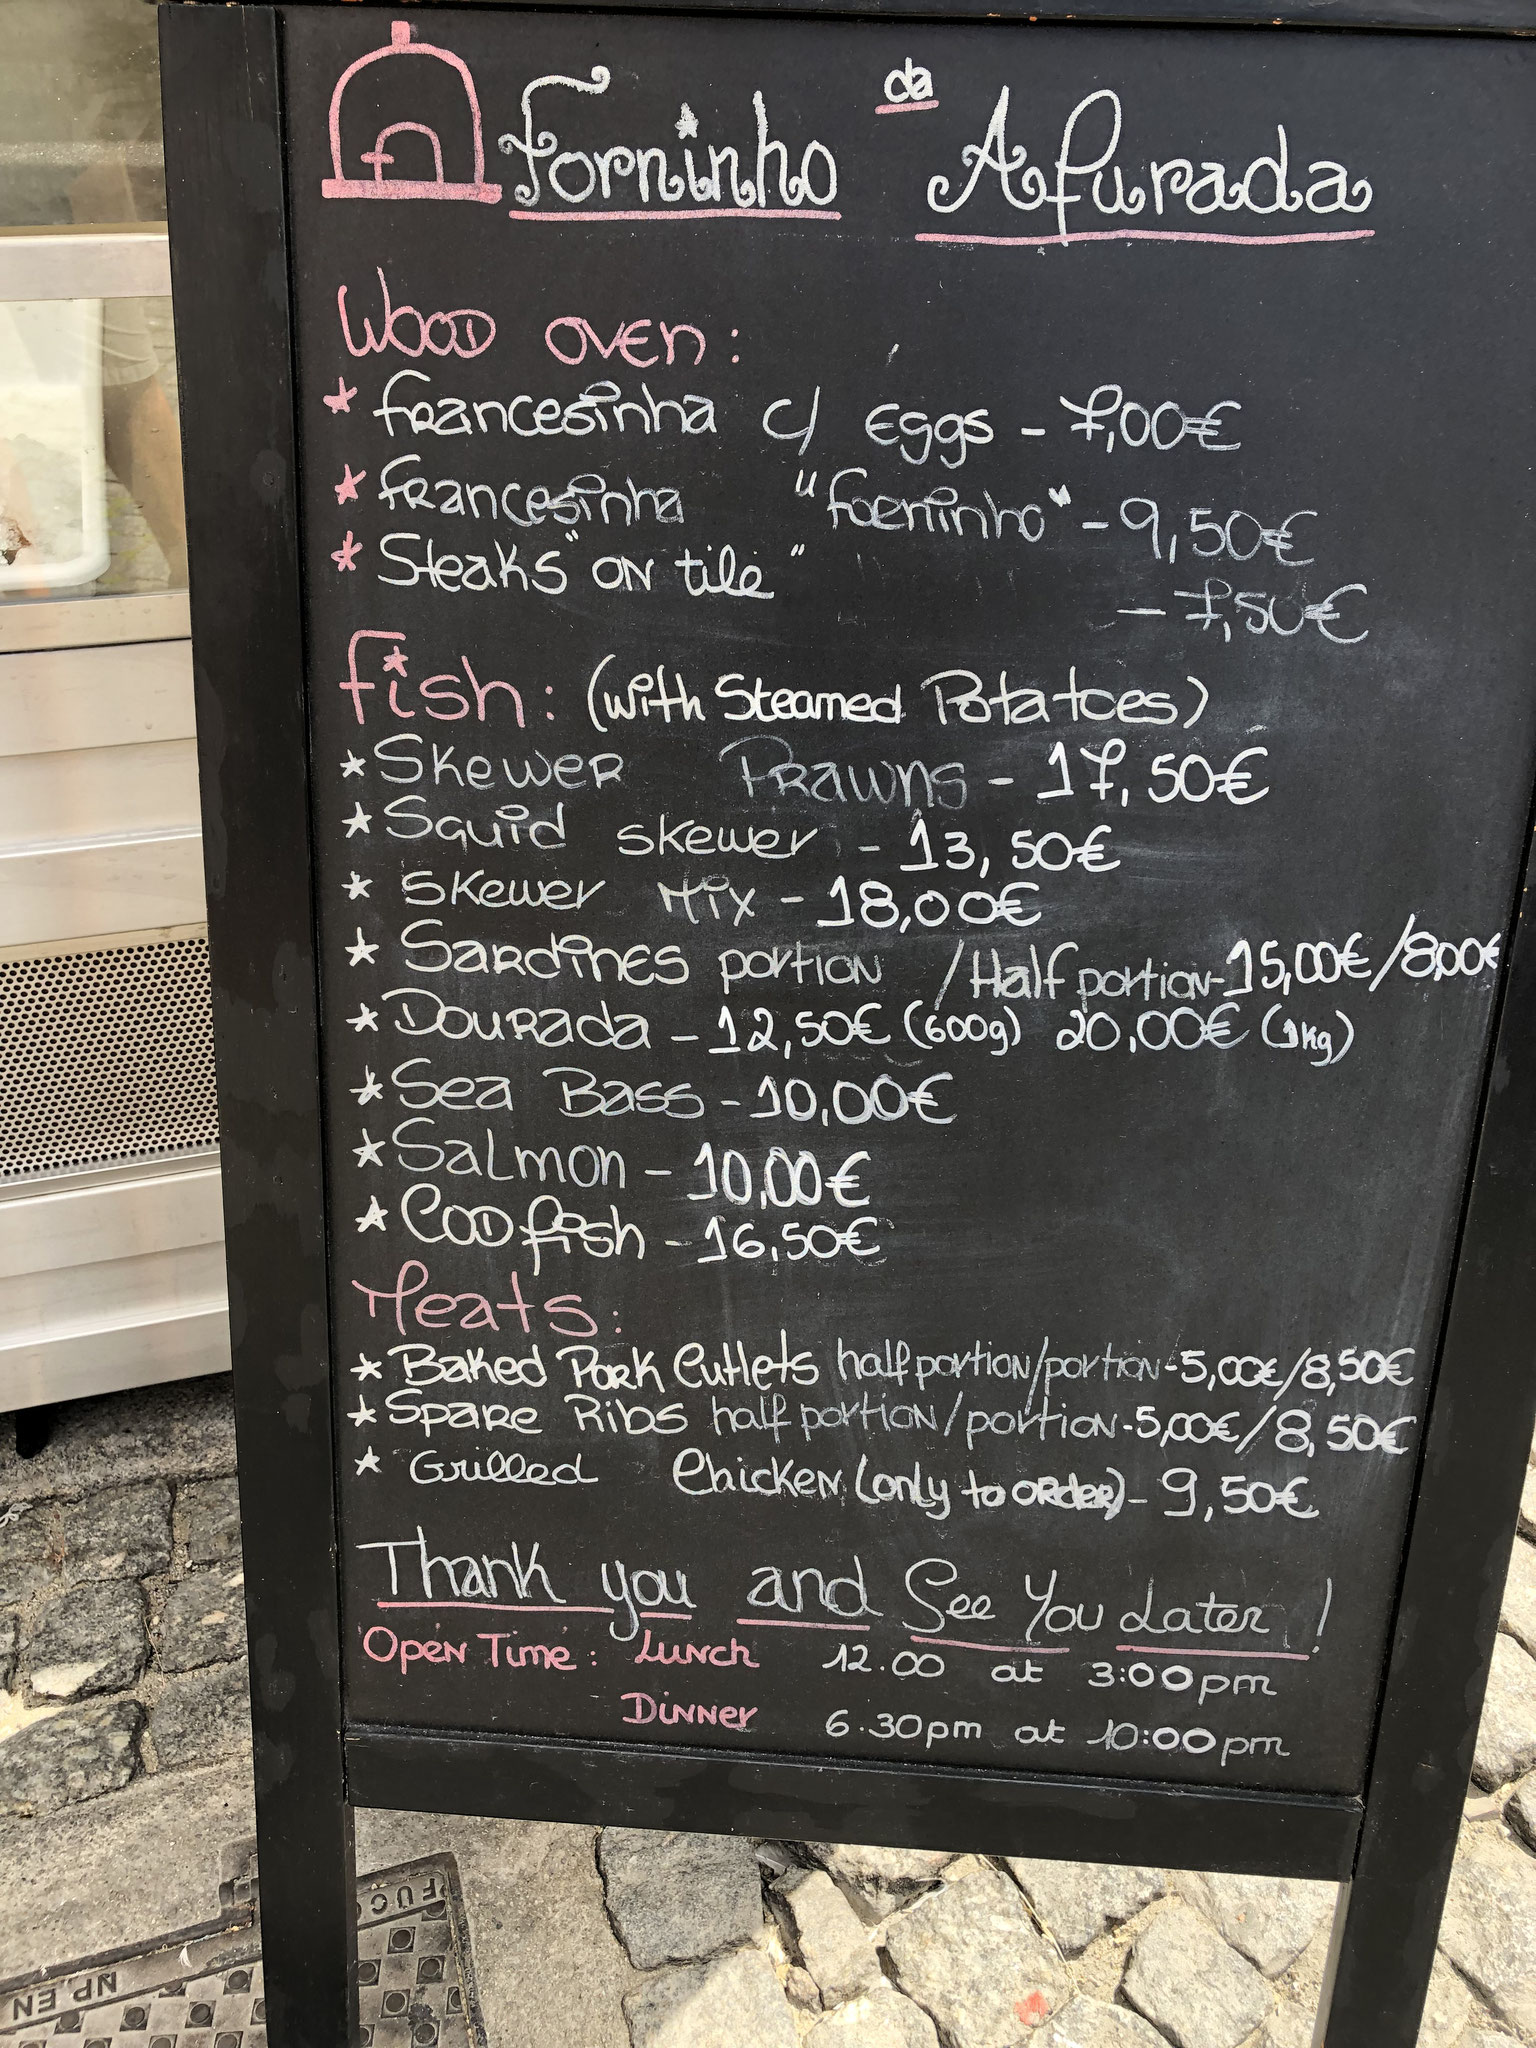 Forninho da Afurada
Wood oven:
* Francesinha c/ Eggs - 7,00€
* Francesinha "Foerninho" - 9,50€
* Steaks "on tile" - 7,50€
Fish: (with Steamed Potatoes)
* Skewer Prawns - 17,50€
* Squid skewer - 13,50€
* Skewer Mix - 18,00€
* Sardines portion / Half portion - 15,00€/8,00€
* Dourada - 12,50€ (600g) 20,00€ (1kg)
* Sea Bass - 10,00€
* Salmon - 10,00€
* Cod fish - 16,50€
Meats:
* Baked Pork Cutlets half portion/portion - 5,00€/8,50€
* Spare Ribs half portion/portion - 5,00€/8,50€
* Grilled Chicken (only to order) - 9,50€
Thank you and See You Later!
Open Time: Lunch 12.00 at 3:00pm
Dinner 6.30pm at 10:00pm
NP.EN